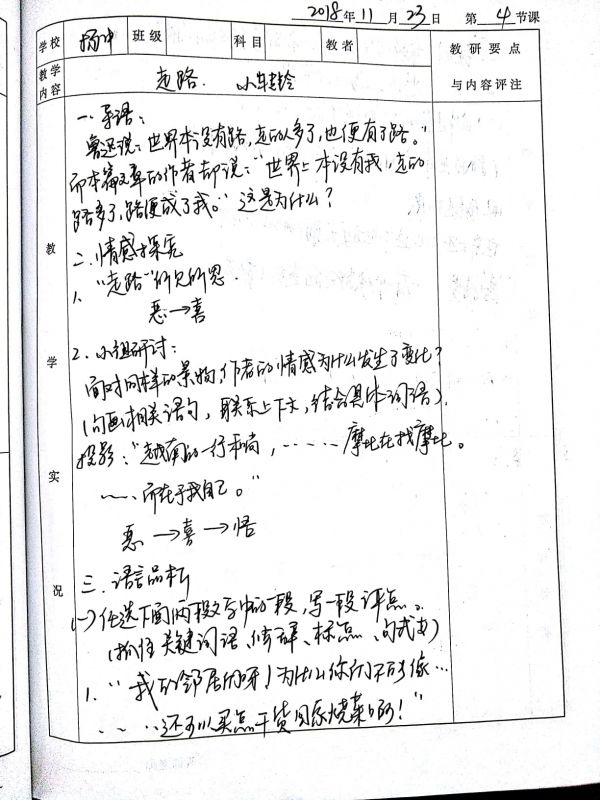 2018年11月23日 第4节课
学校 扬中 班级 科目 教者 教研要点
与内容评注
教学内容 走路. 小车
教学实况
一.导语:
鲁迅说:世界本没有路,走的人多了,也便有了路。"
而本篇文章的作者却说:"世界上本没有我,走的
路多了,路便成了我。"这是为什么?
二.情感探究
1、"走路"的所见所思.
恶→喜
2.小组研讨:
面对同样的景物,作者的情感为什么发生了变化?
(勾画相关语句,联系上下文,结合具体词语).
投影:"越南的一行和尚,……摩比在找摩比。
……所在乎我自己。"
恶→喜→悟
三.语言品析
(一)任选下面两段文字中的一段,写一段评点。
(抓住关键词语、修辞、标点、句式等)
1."我的邻居们呀!为什么你们不可以像…
……还可以买点干货回家烧菜啊!"